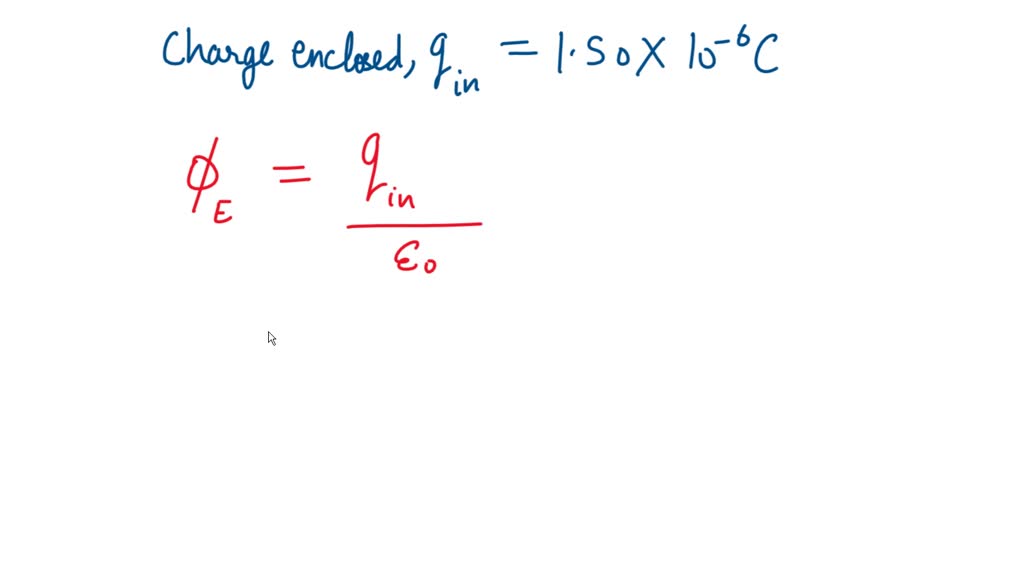 Charge enclosed, q_in = 1.50 X 10^-6 C
ϕ_E = q_in
ε₀